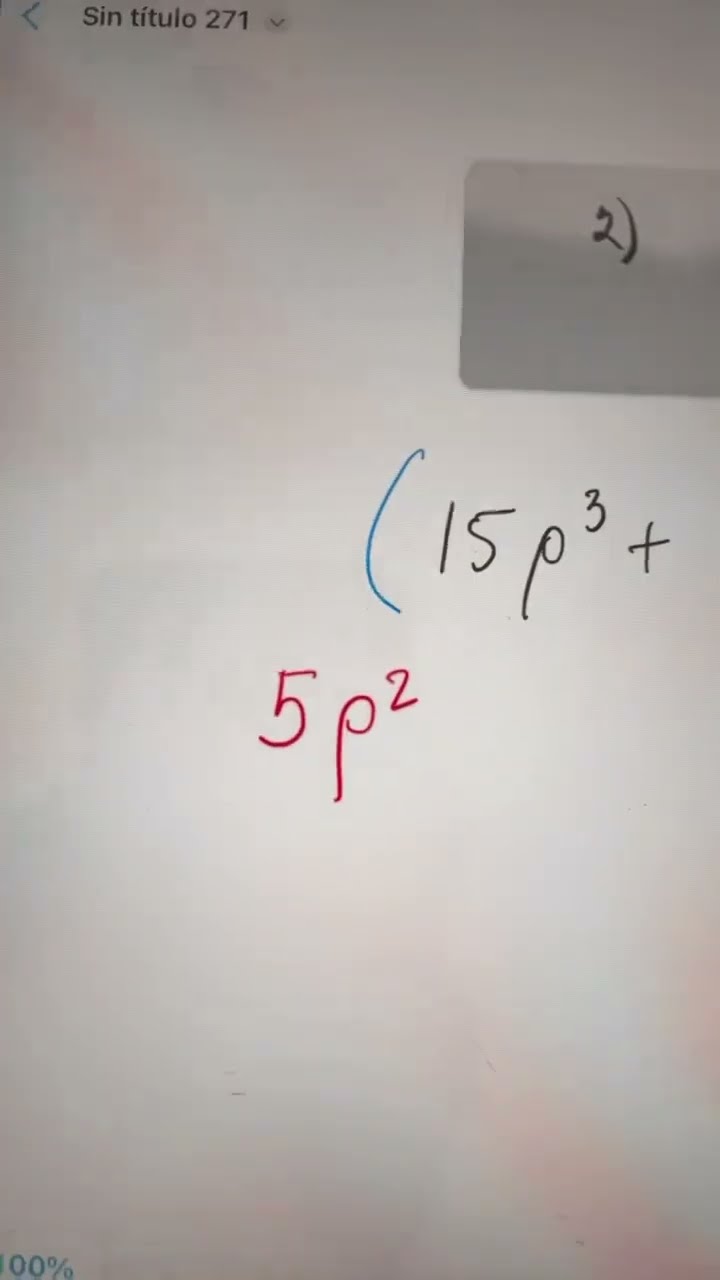 Sin título 271
2)
(15p³+
5p²
100%